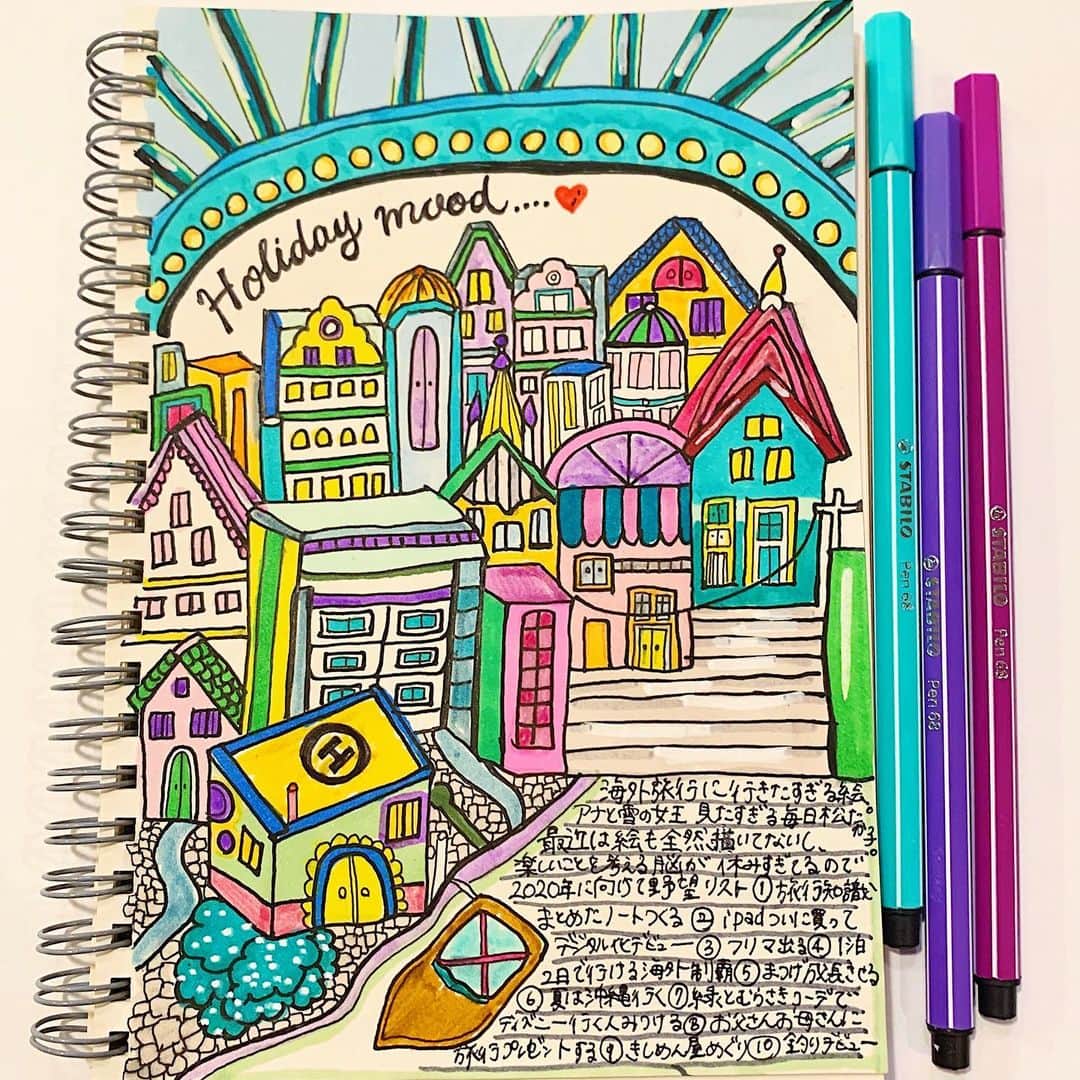 Holiday mood....
H
海外旅行に行きたすぎる絵。
アナと雪の女王 見たすぎる毎日松たか子。
最近は絵も全然描いてないし、
楽しいことを考える脳が休みすぎてるので
2020年に向けて野望リスト ① 旅行知識を
まとめたノートつくる ② ipadついに買って
デジタル化デビュー ③ フリマ出る ④ 1泊
2日で行ける海外制覇 ⑤ まつげ成長させる
⑥ 夏は沖縄行く ⑦ 緑とむらさきコーデで
ディズニー行く人みつける ⑧ お父さんお母さんに
旅行プレゼントする ⑨ きしめん屋めぐり ⑩ 釣りデビュー
STABILO Pen 68
STABILO Pen 68
STABILO Pen 68